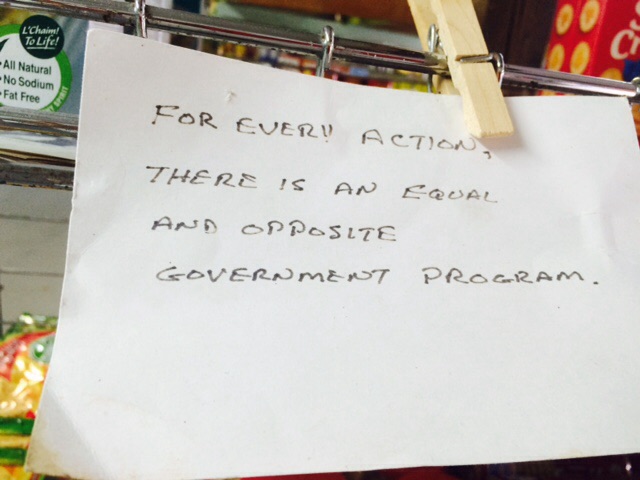 L'Chaim!
To Life!
• All Natural
• No Sodium
• Fat Free
FOR EVER!! ACTION,
THERE IS AN EQUAL
AND OPPOSITE
GOVERNMENT PROGRAM.